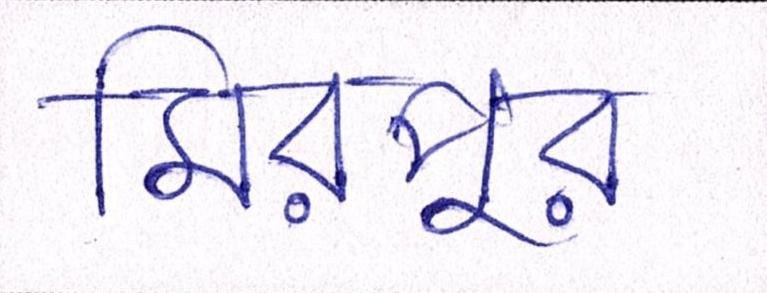 মিরপুর